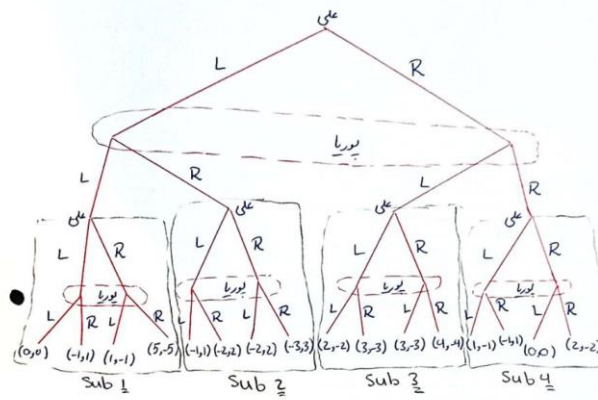 علی
L R
پوریا
L R L R
علی علی علی علی
L R L R L R L R
پوریا پوریا پوریا پوریا
L R L R L R L R L R L R L R
(0,0) (-1,1) (1,-1) (5,-5) (-1,1) (-2,2) (-2,2) (-3,3) (2,-2) (3,-3) (3,-3) (4,-4) (1,-1) (-1,1) (0,0) (2,-2)
Sub 1 Sub 2 Sub 3 Sub 4